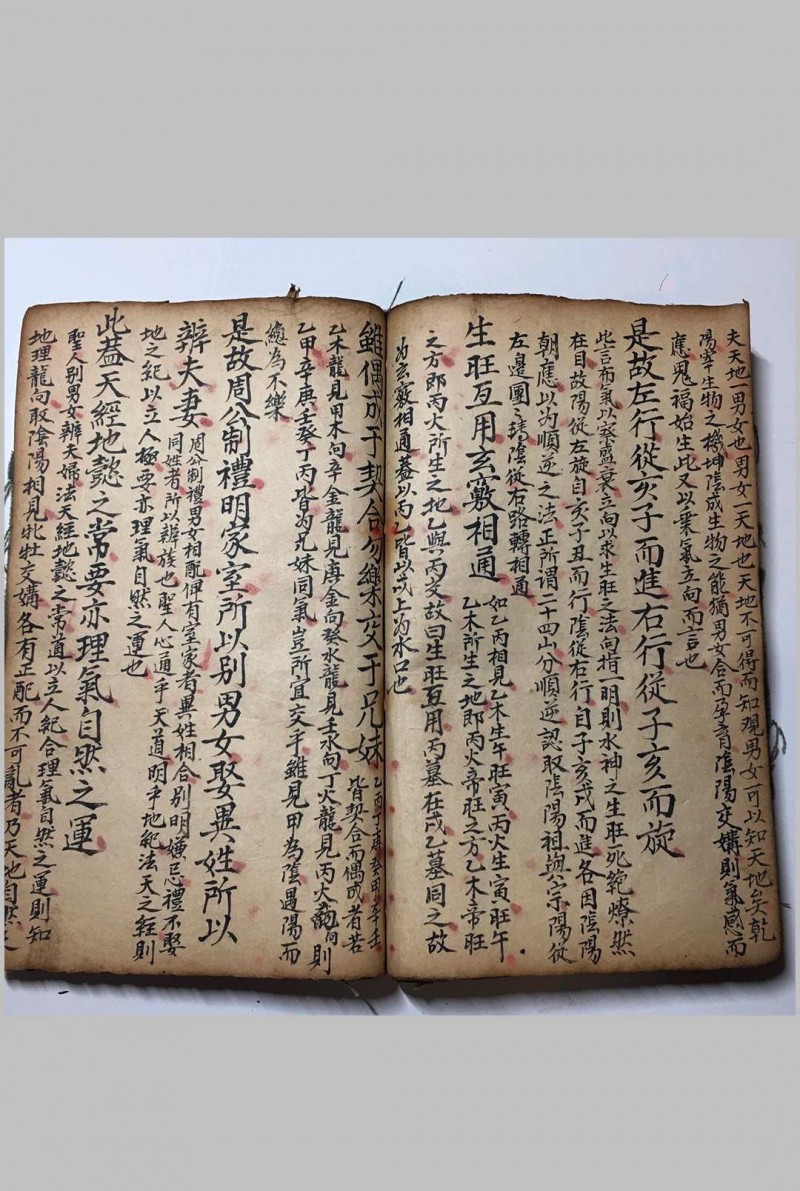 夫天地一男女也男女一天地也天地不可得而知現男女可以知天地矣乾
陽宰生物之機坤陰成生物之能猶男女合而孕育陰陽交媾則氣感而
應鬼福始生此又以乗氣立向而言也
是故左行從亥子而進右行從子亥而旋
此言布氣以察盛衰立向以求生旺之法向指一明則水神之生旺死絕燎然
在目故陽從左旋自亥子丑而行陰從右行自子亥戌而進各因陰陽
朝應以為順逆之法正所谓二十四山分順逆認取陰陽祖與宗陽從
左邊團〻轉陰從右路轉相通
生旺互用玄竅相通
如乙丙相見乙木生午旺寅丙火生寅旺午
乙木所生之地即丙火帝旺之方乙木帝旺
之方即丙火所生之地乙與丙交故曰生旺互用丙墓在戌乙墓同之故
為玄竅相通蓋以丙乙皆以戌上為水口也
雖偶成于契合勿樂交于兄妹
乙丙丁庚癸甲辛壬
皆契合而偶成者若
乙木龍見甲木向辛金龍見庚金向癸水龍見壬水向丁火龍見丙火向則
乙甲辛庚壬癸丁丙皆为兄妹同氣豈所宜交乎雖見甲為陰遇陽而
緫為不樂
是故周公制禮明家室所以别男女娶異姓所以
辨夫妻
周公制禮男女相配俾有室家者異姓相合别明嫌忌禮不娶
同姓者所以辨族也聖人心通乎天道明乎地紀法天之經則
地之紀以立人極要亦理氣自然之運也
此蓋天經地懿之常要亦理氣自然之運
聖人别男女辨夫婦法天經地懿之常道以立人紀合理氣自然之運則知
地理龍向取陰陽相見牝牡交媾各有正配而不可亂者乃天地自然之